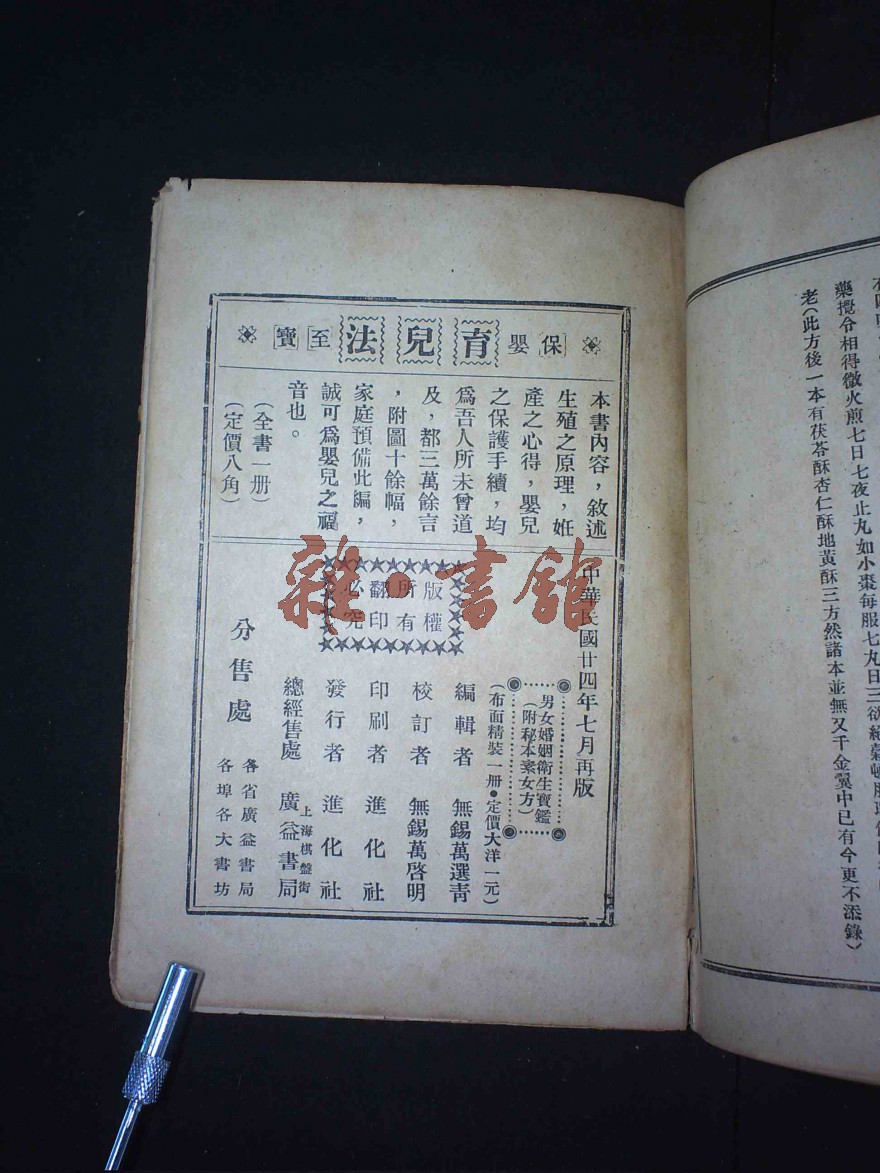 藥攪令相得微火煎七日七夜止丸如小棗每服七丸日三欲絕穀頓服
老(此方後一本有茯苓酥杏仁酥地黃酥三方然諸本並無又千金翼中已有今更不添錄)
保嬰育兒法至寶
本書內容,敘述
生殖之原理,姙
產之心得,嬰兒
之保護手續,均
爲吾人所未曾道
及,都三萬餘言
,附圖十餘幅,
家庭預備此編,
誠可爲嬰兒之福
音也。
(全書一册)
(定價八角)
中華民國廿四年七月再版
男女婚姻衛生寶鑑
(附秘本素女方)
(布面精裝一册●定價大洋一元)
版權
所有
翻印
必究
編輯者 無錫萬選青
校訂者 無錫萬啓明
印刷者 進化社
發行者 進化社
總經售處 上海棋盤街 廣益書局
分售處
各省廣益書局
各埠各大書坊
雜書館